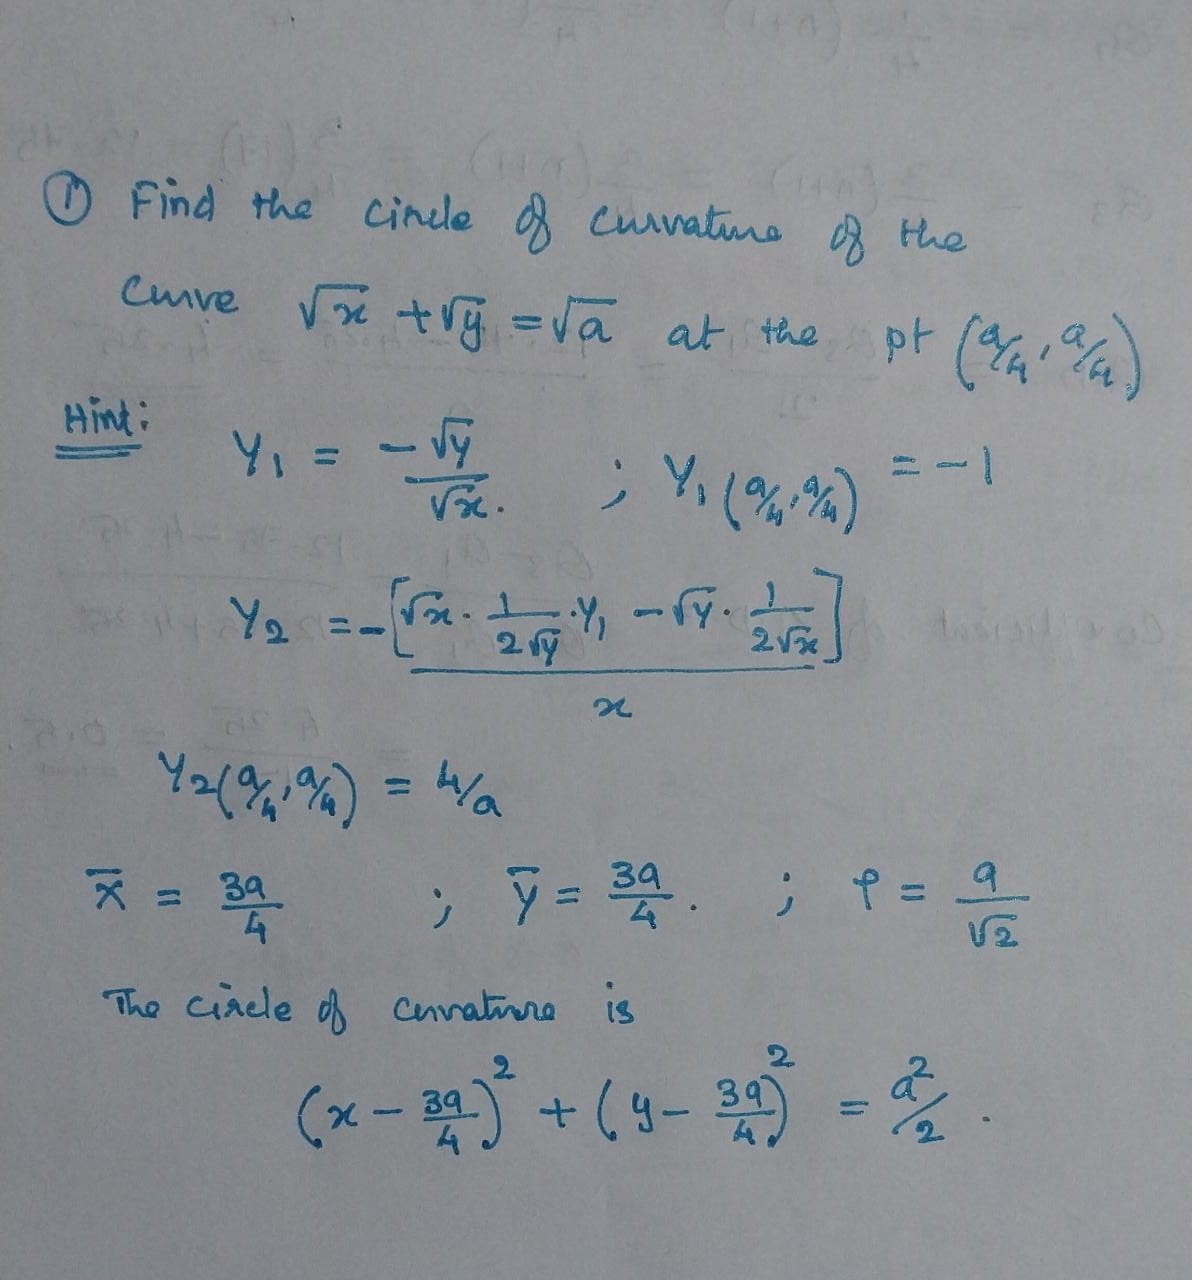 ① Find the circle of curvature of the
curve √x + √y = √a at the pt (a/4, a/4)
Hint: Y₁ = -√y/√x. ; Y₁(a/4, a/4) = -1
Y₂ = -[√x · 1/(2√y) · Y₁ - √y · 1/(2√x)] / x
Y₂(a/4, a/4) = 4/a
x̄ = 3a/4 ; ȳ = 3a/4 . ; ρ = a/√2
The circle of curvature is
(x - 3a/4)² + (y - 3a/4)² = a²/2 .